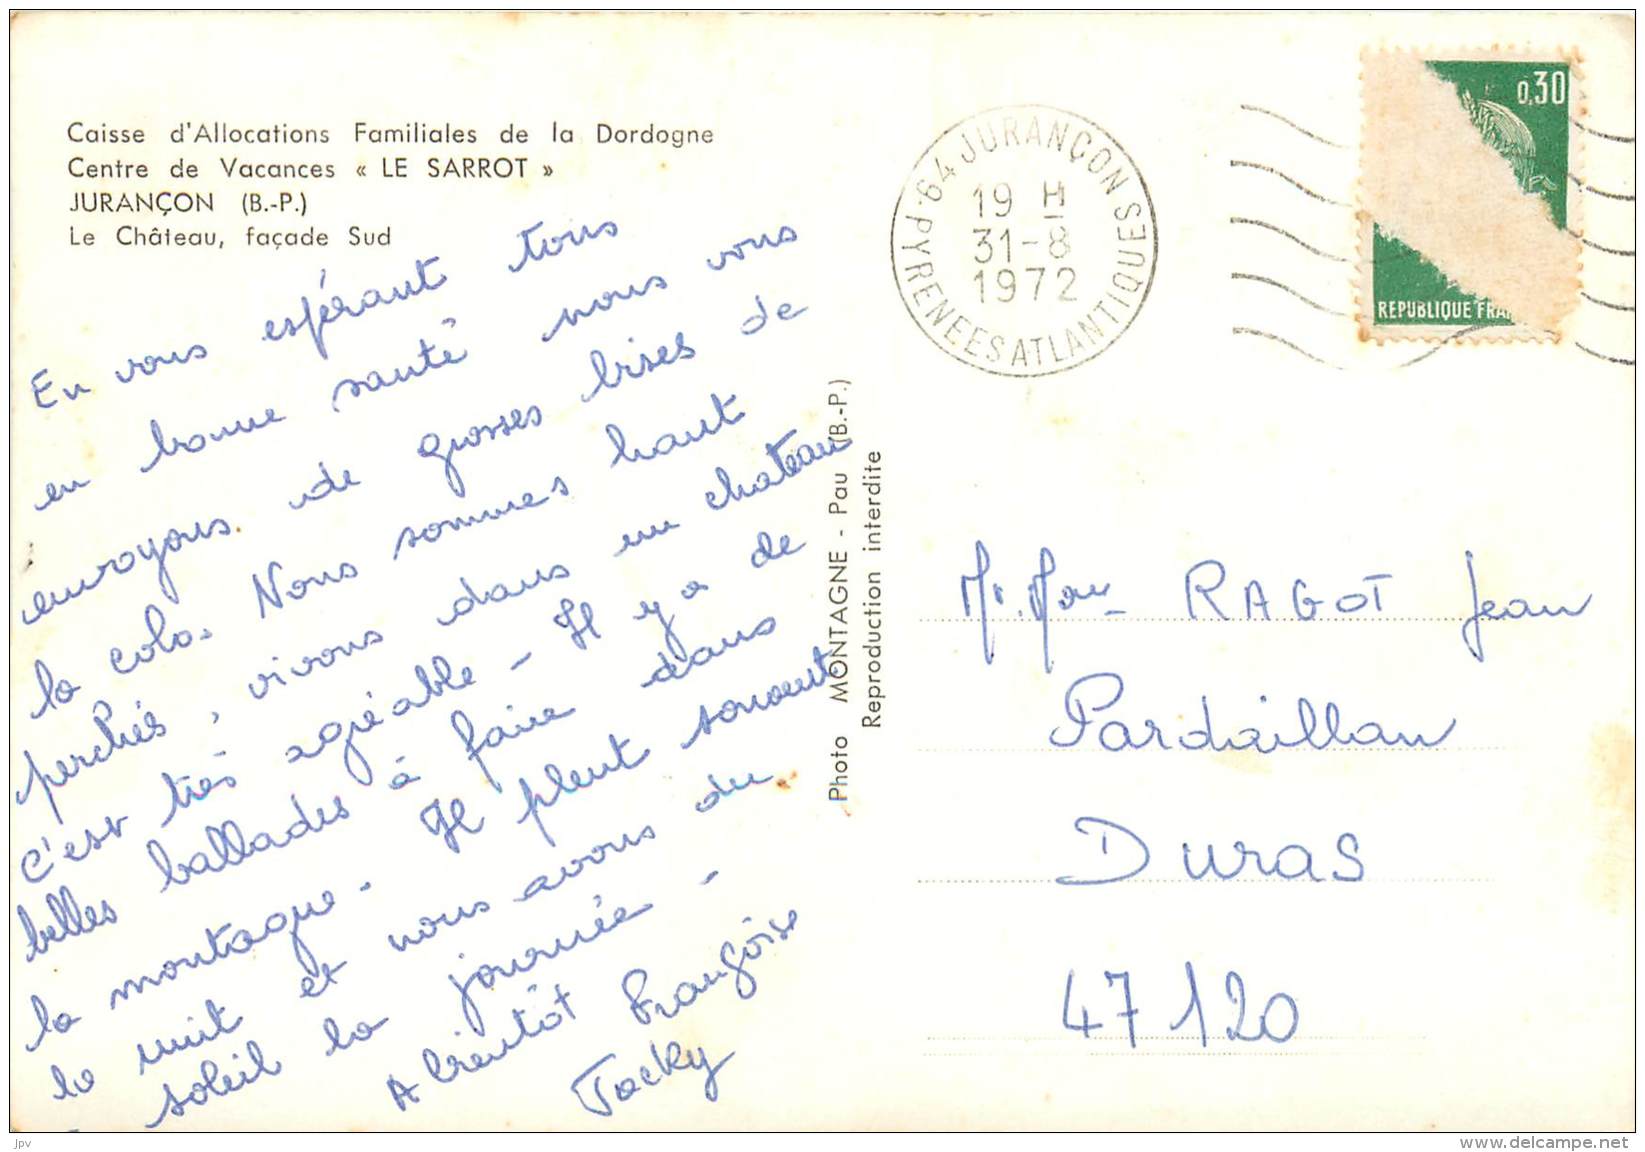 Caisse d'Allocations Familiales de la Dordogne
Centre de Vacances « LE SARROT »
JURANÇON (B.-P.)
Le Château, façade Sud
En vous espérant tous
en bonne santé nous vous
envoyons de grosses bises de
la colo. Nous sommes haut
perchés, vivons dans un chateau
c'est très agréable - Il y a de
belles ballades à faire dans
la montagne - Il pleut souvent
la nuit et nous avons du
soleil la journée -
A bientôt Françoise
Jacky
Photo MONTAGNE - Pau (B.-P.)
Reproduction interdite
64 JURANÇON
19 H
31-8
1972
PYRENEES ATLANTIQUES
0,30
REPUBLIQUE FRA
RAGOT Jean
Pardaillan
Duras
47120
jpv
delcampe.net